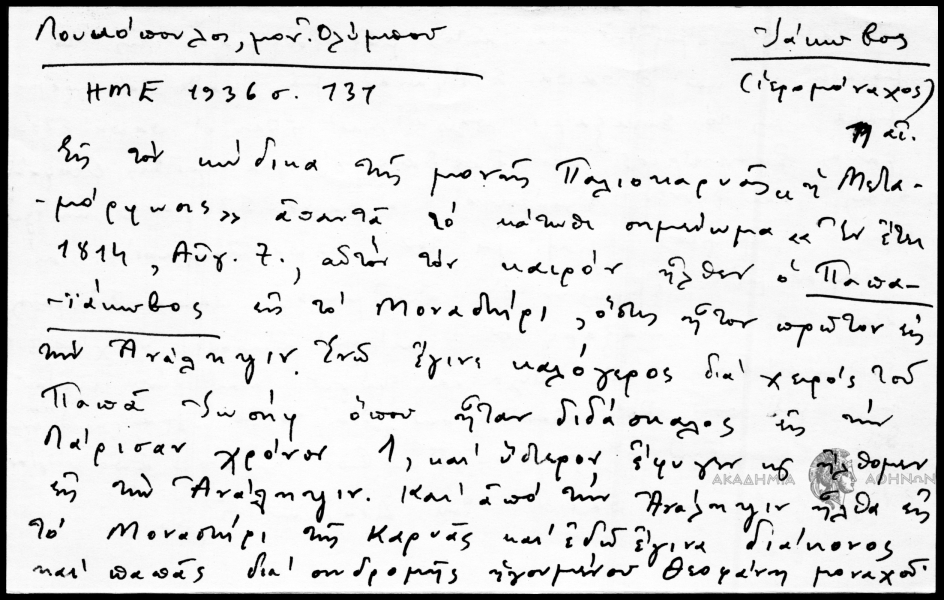 Λουκόπουλος, μον. Ὀλύμπου
Ἰάκωβος
ΗΜΕ 1936 σ. 131
(ἱερομόναχος)
19 αἰ.
Εἰς τὸν κώδικα τῆς μονῆς Παλιοκαρυᾶς «ἡ Μετα-
-μόρφωσις» ἀπαντᾶ τὸ κάτωθι σημείωμα «Ἐν ἔτει
1814, Αὐγ. 7., αὐτὸν τὸν καιρὸν ἦλθεν ὁ Παπα-
-ϊάκωβος εἰς τὸ Μοναστήρι, ὅστις ἦτον πρῶτον εἰς
τὴν Ἀνάληψιν. Ἐνῶ ἔγινε καλόγερος διὰ χειρὸς τοῦ
Παπᾶ Ἰωσὴφ ὁποῦ ἦταν διδάσκαλος εἰς τὴν
Λάρισαν χρόνον 1, καὶ ὕστερον ἔφυγεν κς ἤλθομεν
εἰς τὴν Ἀνάληψιν. Καὶ ἀπὸ τὴν Ἀνάληψιν ἦλθα εἰς
τὸ Μοναστήρι τῆς Καρυᾶς καὶ ἐδῶ ἔγινα διάκονος
καὶ παπᾶς διὰ συνδρομῆς ἡγουμένου Θεοφάνη μοναχοῦ.
ΑΚΑΔΗΜΙΑ ΑΘΗΝΩΝ